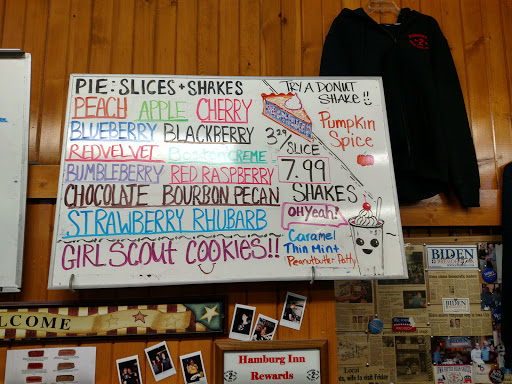 PIE: SLICES + SHAKES
PEACH APPLE CHERRY
BLUEBERRY BLACKBERRY
RED VELVET BOSTON CREME
BUMBLEBERRY RED RASPBERRY
CHOCOLATE BOURBON PECAN
STRAWBERRY RHUBARB
GIRL SCOUT COOKIES!!
TRY A DONUT
SHAKE!!
PUMPKIN
SPICE
3.29/SLICE
7.99
SHAKES
OH Yeah!
Caramel
Thin Mint
Peanutbutter Patty
WELCOME
Hamburg Inn
Rewards
BIDEN
BIDEN